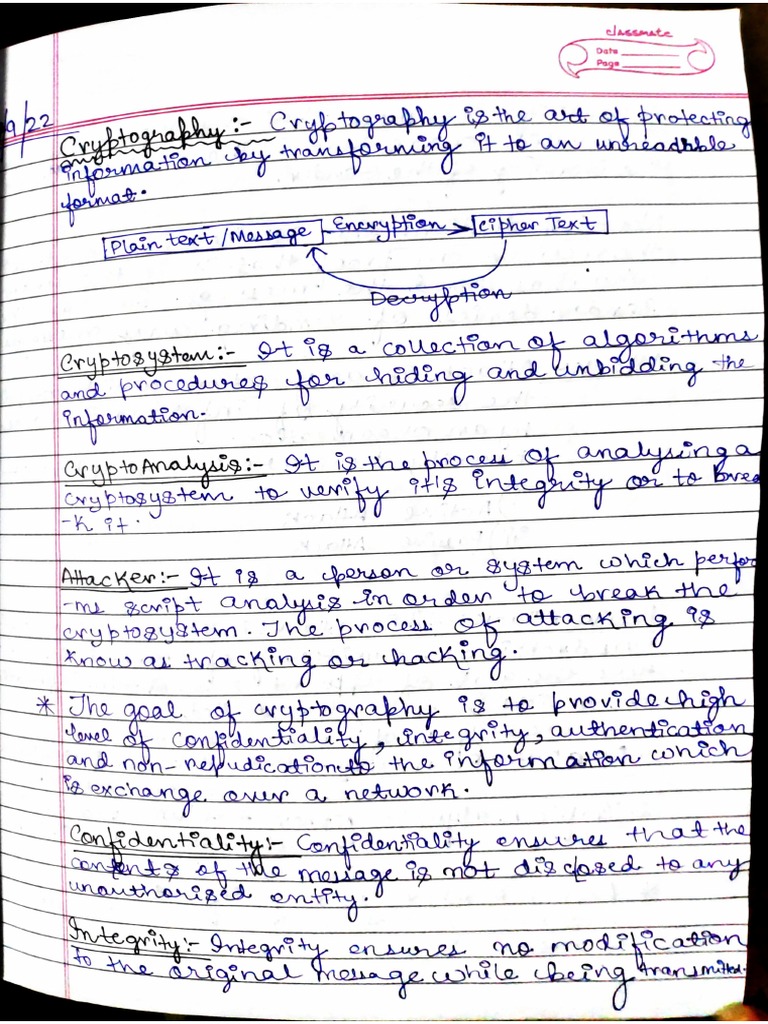 classmate
Date
Page
9/22
Cryptography:- Cryptography is the art of protecting
information by transforming it to an unreadable
format.
Plain text/Message Encryption Cipher Text
Decryption
Cryptosystem:- It is a collection of algorithms
and procedures for hiding and unbidding the
information.
CryptoAnalysis:- It is the process of analysing a
cryptosystem to verify it's integrity or to brea
-k it.
Attacker:- It is a person or system which perfor
-ms script analysis in order to break the
cryptosystem. The process of attacking is
know as tracking or hacking.
* The goal of cryptography is to provide high
level of confidentiality, integrity, authentication
and non-repudication to the information which
is exchange over a network.
Confidentiality:- Confidentiality ensures that the
contents of the message is not disclosed to any
unauthorised entity.
Integrity:- Integrity ensures no modification
to the original message while being transmitted.